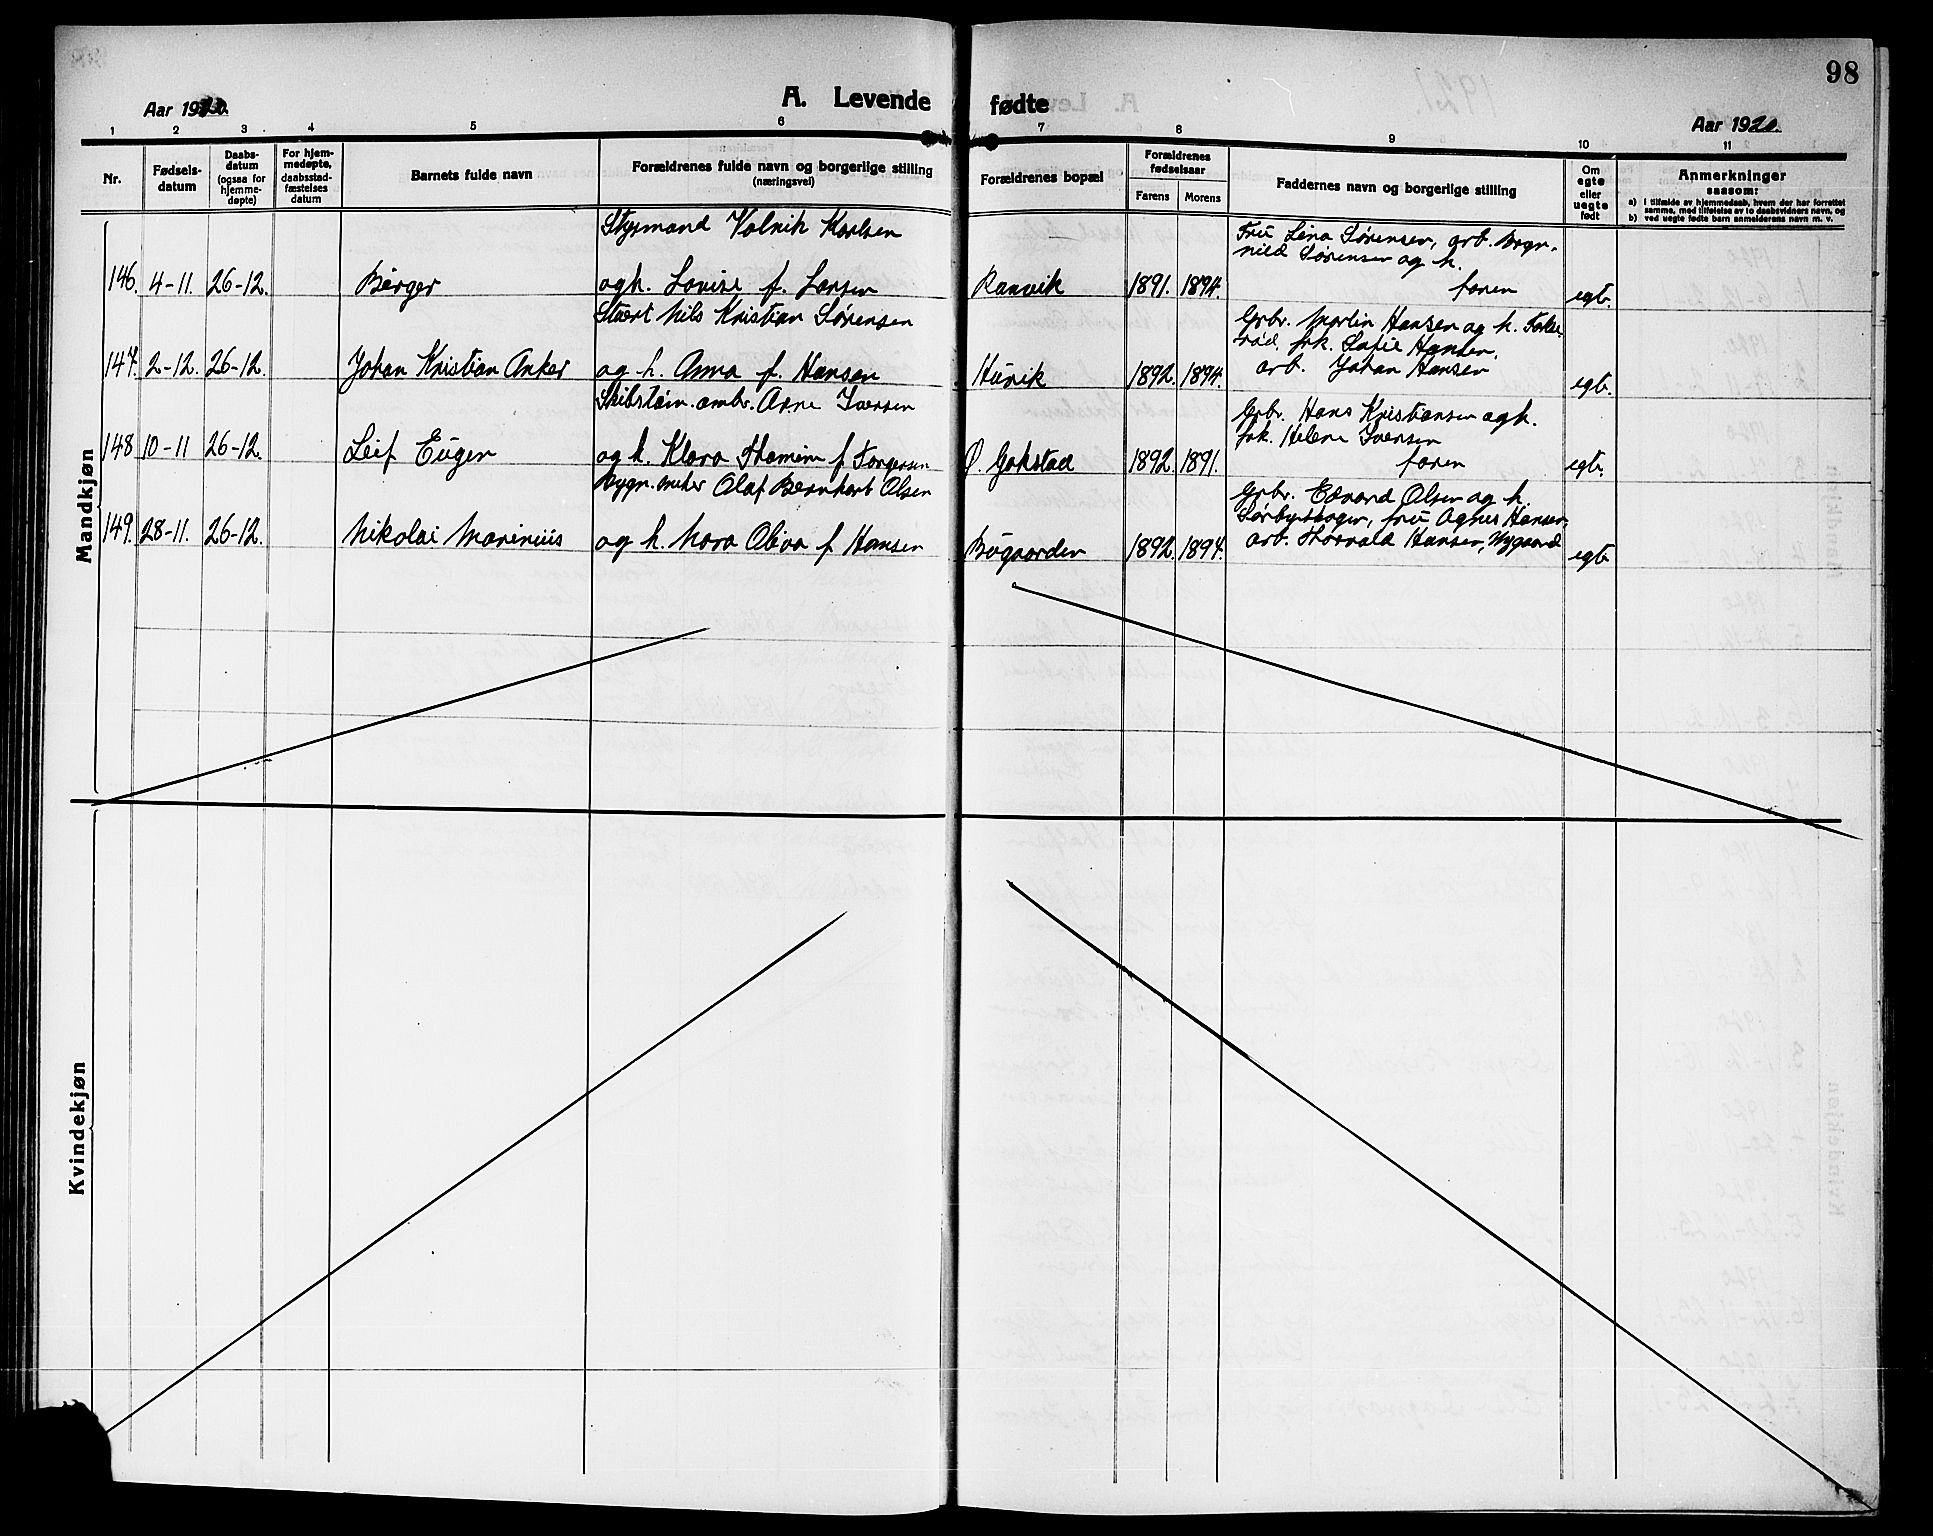 98
A. Levende fødte
Aar 1920.
Aar 1920.
1 2 3 4 5 6 7 8 9 10 11
Nr.
Fødsels-
datum
Daabs-
datum
(ogsaa for
hjemme-
døpte)
For hjem-
medøpte,
daabsstad-
fæstelses
datum
Barnets fulde navn
Forældrenes fulde navn og borgerlige stilling
(næringsvei)
Forældrenes bopæl
Forældrenes
fødselsaar
Farens
Morens
Faddernes navn og borgerlige stilling
Om
egte
eller
uegte
født
Anmerkninger
saasom:
a) i tilfælde av hjemmedaab, hvem der har forrettet
samme, med tilføielse av to daabsvidners navn, og
b) ved uegte fødte barn anmelderens navn m. v.
Mandkjøn
Styrmand Valrik Karlsen
Fru Lina Sørensen, arb.
Sørensen og h.
146. 4-11. 26-12. Birger ogh. Lovise f. Larsen Ranvik 1891. 1894. faren egte.
Stuert Nils Kristian Sørensen
Grbr. Martin Hansen og h.
frk. Hansen,
147. 2-12. 26-12. Johan Kristian Anker og h. Anna f. Hansen Hunik 1892. 1894. arb. Johan Hansen egte.
Skibstøm. Arne Iversen
Grbr. Hans Kristiansen ogh.
frk. Helene Iversen
148 10-11 26-12. Leif Eugen og h. Klara f. Torgersen Ø. Gokstad 1892. 1891. faren egte.
Bygn. snekker Olaf Bernhart Olsen
Grbr. Edvard Olsen og h.
fru Agnes Hansen,
149. 28-11. 26-12. Nikolai Marinius og h. Nora Oliva f. Hansen Bøgaarden 1892. 1894. arb. Thorvald Hansen, Nygaard egte
Kvindekjøn